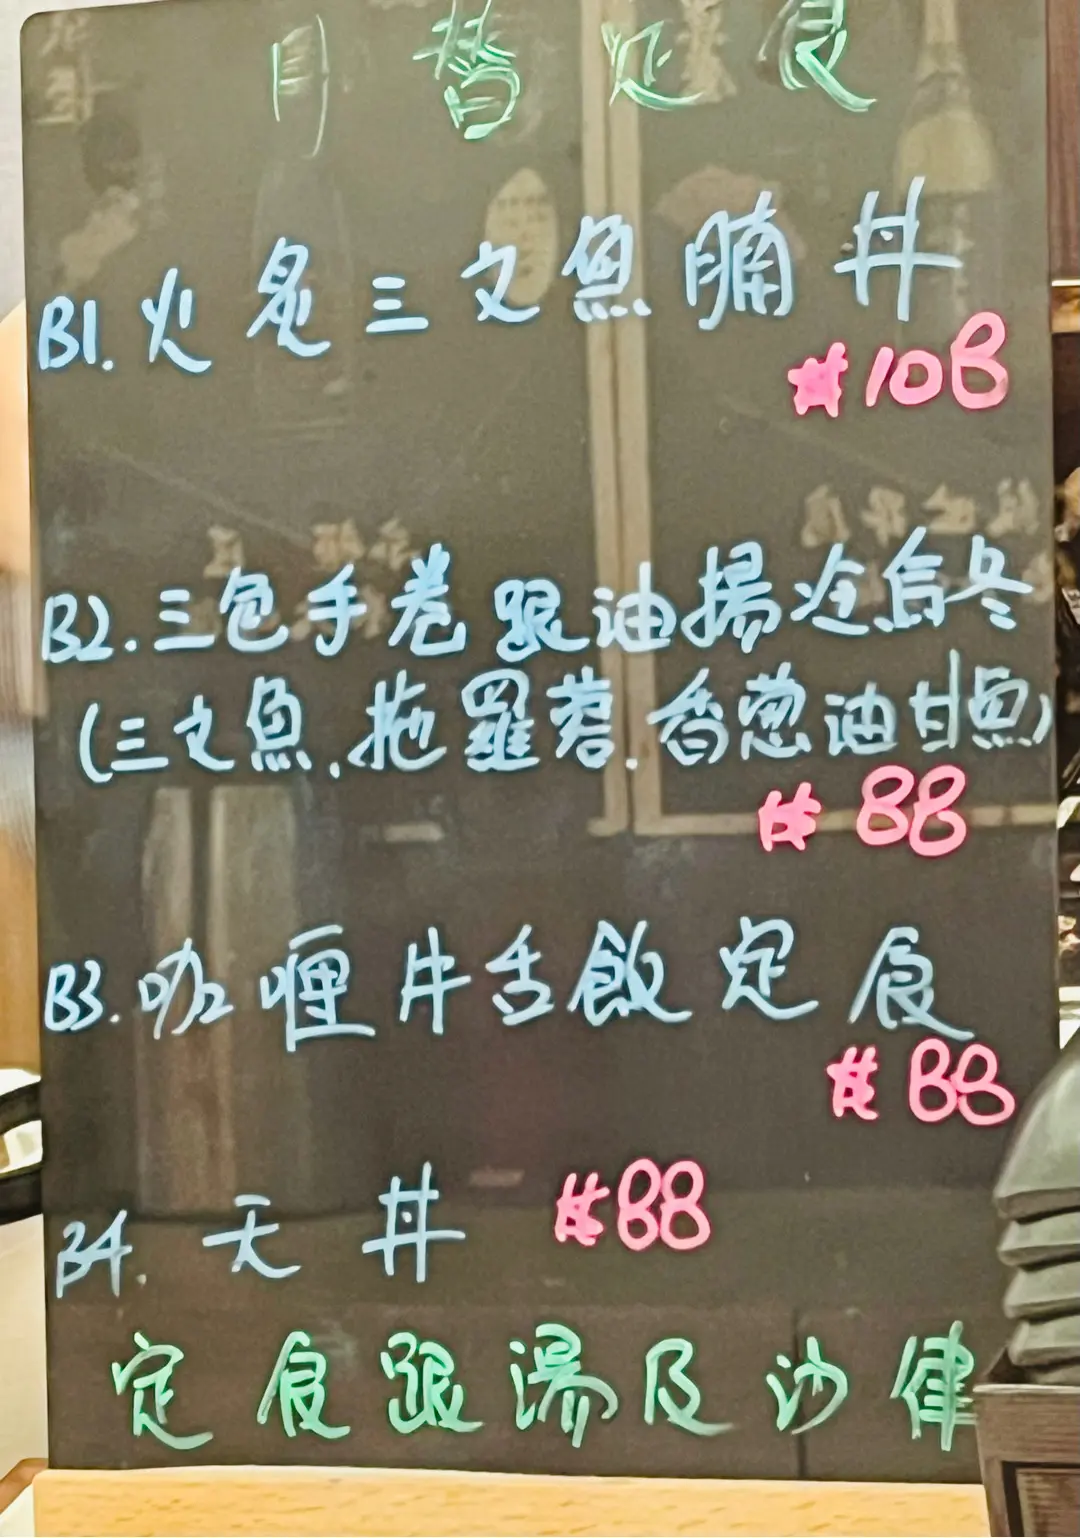 月替定食
B1. 火炙三文魚腩丼
$108
B2. 三色手卷跟油揚冷烏冬
(三文魚, 拖羅蓉, 香葱油甘魚)
$88
B3. 咖喱牛舌飯定食
$88
B4. 天丼 $88
定食跟湯及沙律